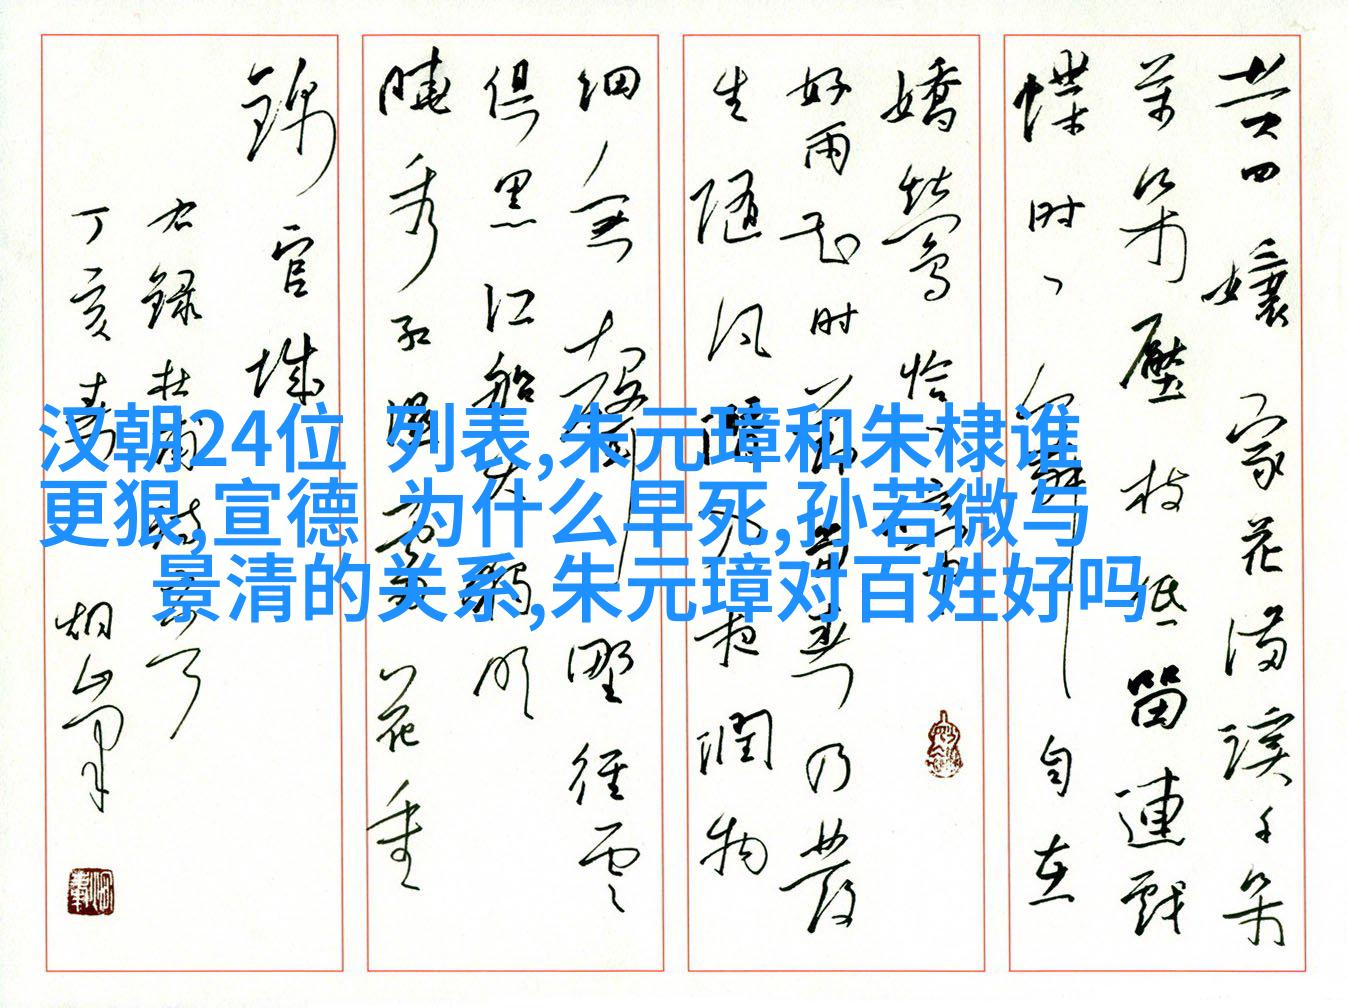 汉朝24位 列表,朱元璋和朱棣谁
更狠,宣德 为什么早死,孙若微与
景清的关系,朱元璋对百姓好吗
黄四孃家花满溪千朵
万朵壓枝低留連戏
蝶时时舞自在
嬌莺恰恰啼
好雨知时节当春乃發
生随风潜入夜润物
细无声野径雲
俱黑江船火独明
晓看红湿处花重
錦官城
右録杜甫诗
丁亥春